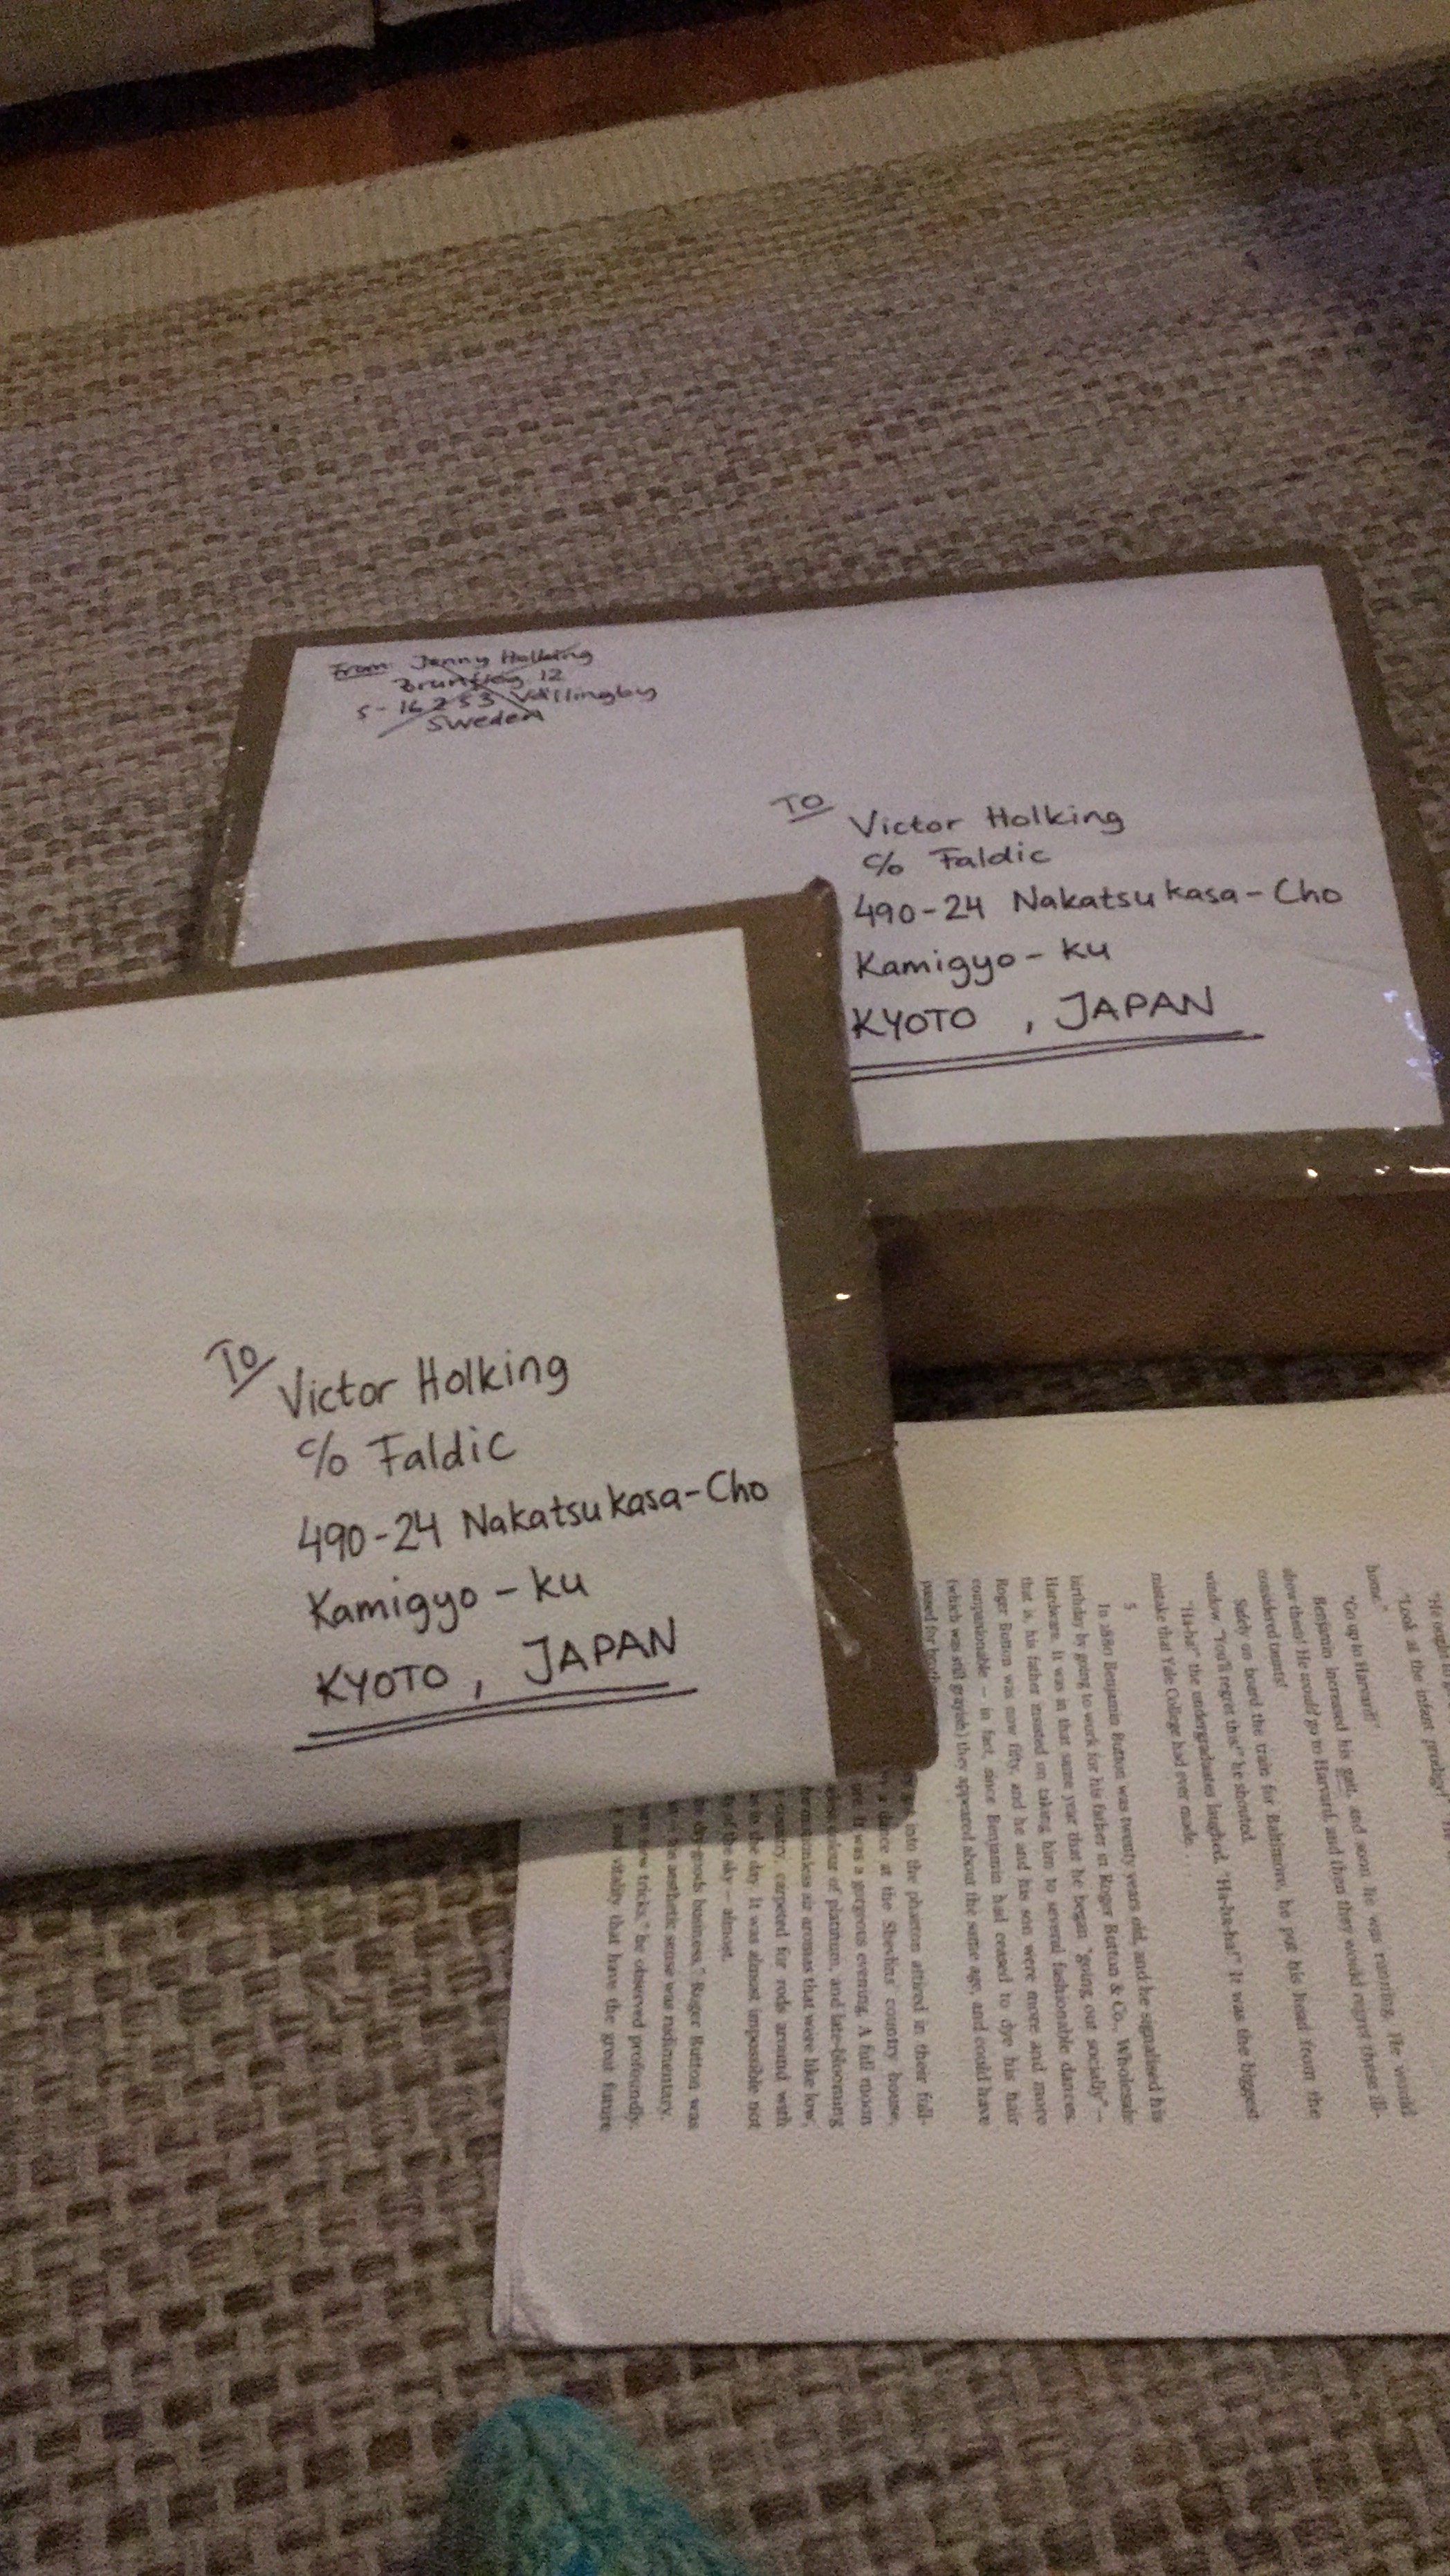 From: Jenny Holking
Brunflog 12
S-162 53 Vällingby
Sweden
TO
Victor Holking
c/o Faldic
490-24 Nakatsukasa-Cho
Kamigyo-ku
KYOTO, JAPAN
TO
Victor Holking
c/o Faldic
490-24 Nakatsukasa-Cho
Kamigyo-ku
KYOTO, JAPAN
"He ought
"Look at the infant prodigy!"
home."
"Go up to Harvard!"
Benjamin increased his gait, and soon he was running. He would
show them! He would go to Harvard, and then they would regret these ill-
considered taunts!
Safely on board the train for Baltimore, he put his head from the
window. "You'll regret this!" he shouted.
"Ha-ha!" the undergraduates laughed. "Ha-ha-ha!" It was the biggest
mistake that Yale College had ever made . . .
5
In 1880 Benjamin Button was twenty years old, and he signalised his
birthday by going to work for his father in Roger Button & Co., Wholesale
Hardware. It was in that same year that he began "going out socially" –
that is, his father insisted on taking him to several fashionable dances.
Roger Button was now fifty, and he and his son were more and more
companionable – in fact, since Benjamin had ceased to dye his hair
(which was still grayish) they appeared about the same age, and could have
passed for
into the phaeton attired in their full-
a dance at the Shevlins' country house,
It was a gorgeous evening. A full moon
colour of platinum, and late-blooming
motionless air aromas that were like low,
country, carpeted for rods around with
in the day. It was almost impossible not
of the sky – almost.
dry-goods business," Roger Button was
aesthetic sense was rudimentary.
new tricks," he observed profoundly.
and vitality that have the great future